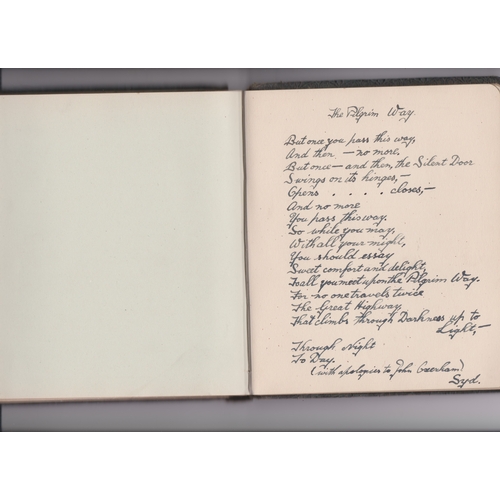 The Pilgrim Way.
But once you pass this way,
And then — no more.
But once — and then, the Silent Door
Swings on its hinges, —
Opens . . . . closes, —
And no more
You pass this way.
So while you may,
With all your might,
You should essay
Sweet comfort and delight,
To all you meet upon the Pilgrim Way.
For no one travels twice
The Great Highway,
That climbs through Darkness up to
Light, —
Through Night
To Day.
(with apologies to John Oxenham)
Syd.